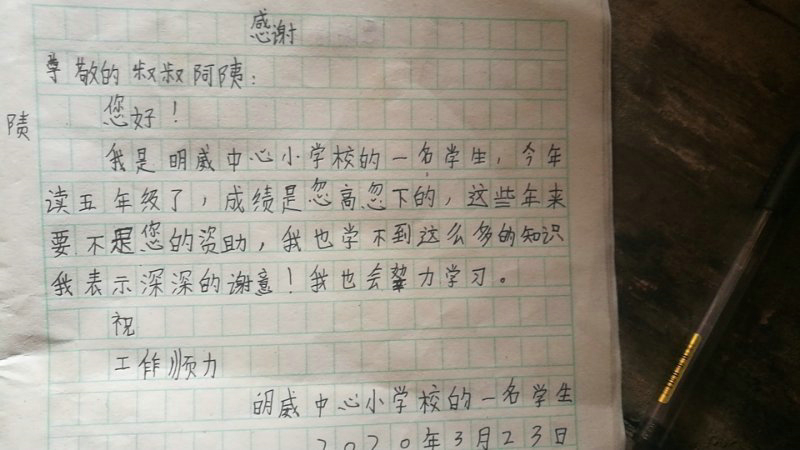 感谢
尊敬的叔叔阿姨：
您好！
我是明威中心小学校的一名学生，今年
读五年级了，成绩是忽高忽下的，这些年来
要不是您的资助，我也学不到这么多的知识
我表示深深的谢意！我也会努力学习。
祝
工作顺力
明威中心小学校的一名学生
2020年3月23日